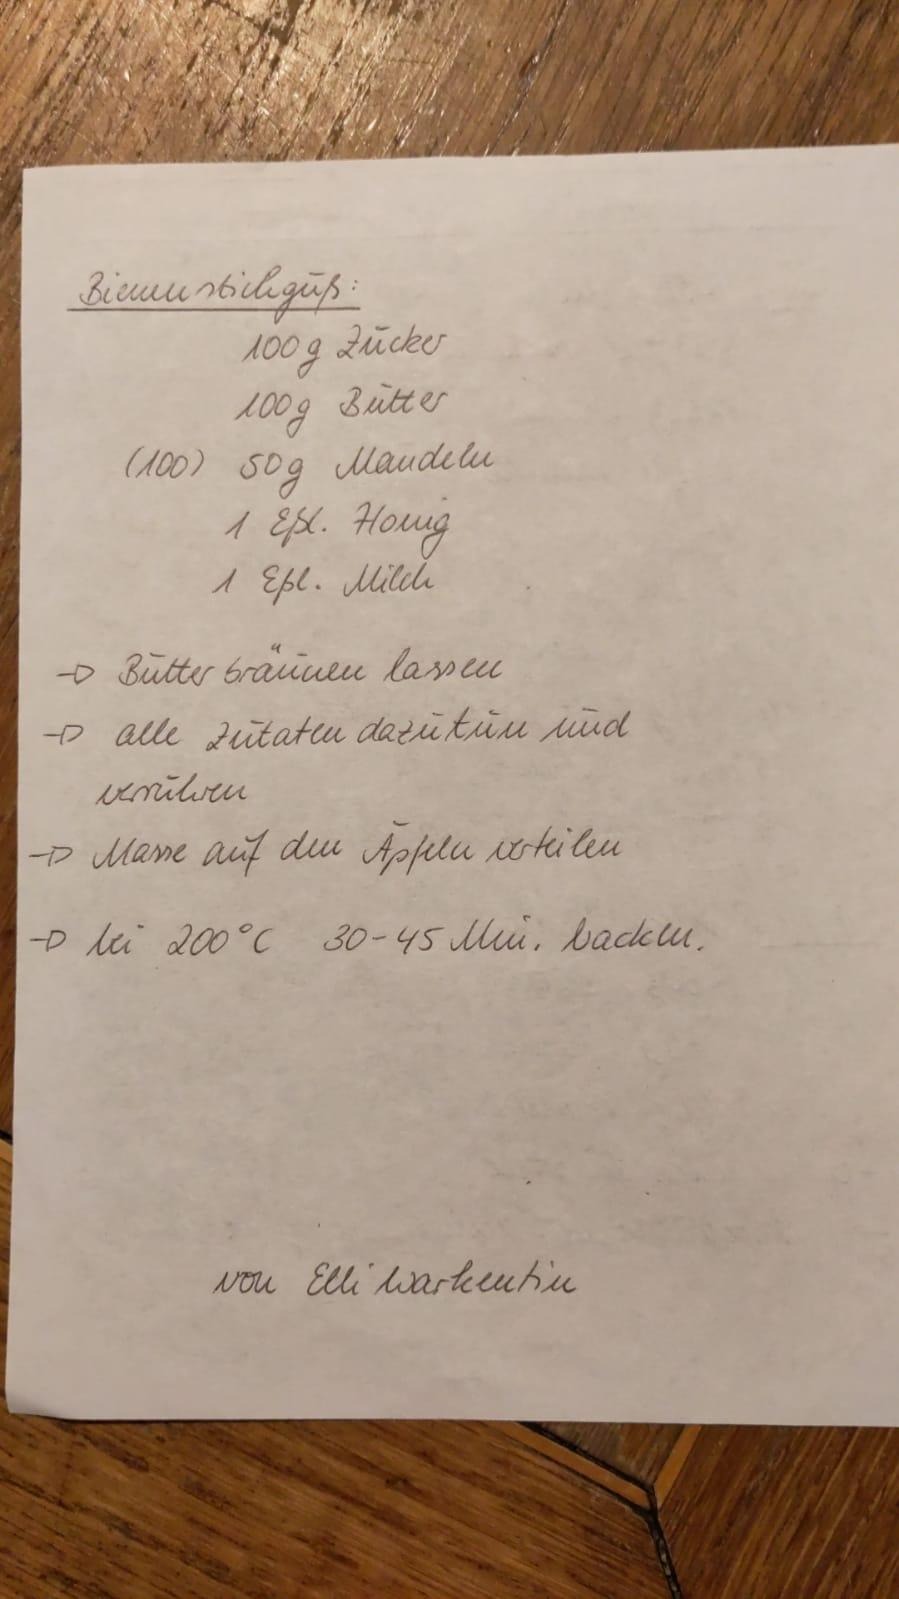 Bienenstichguß:
100g Zucker
100g Butter
(100) 50g Mandeln
1 Eßl. Honig
1 Eßl. Milch
→ Butter bräunen lassen
→ alle Zutaten dazutun und
verrühren
→ Masse auf den Äpfeln verteilen
→ bei 200°C 30-45 Min. backen.
von Elli Warkentin